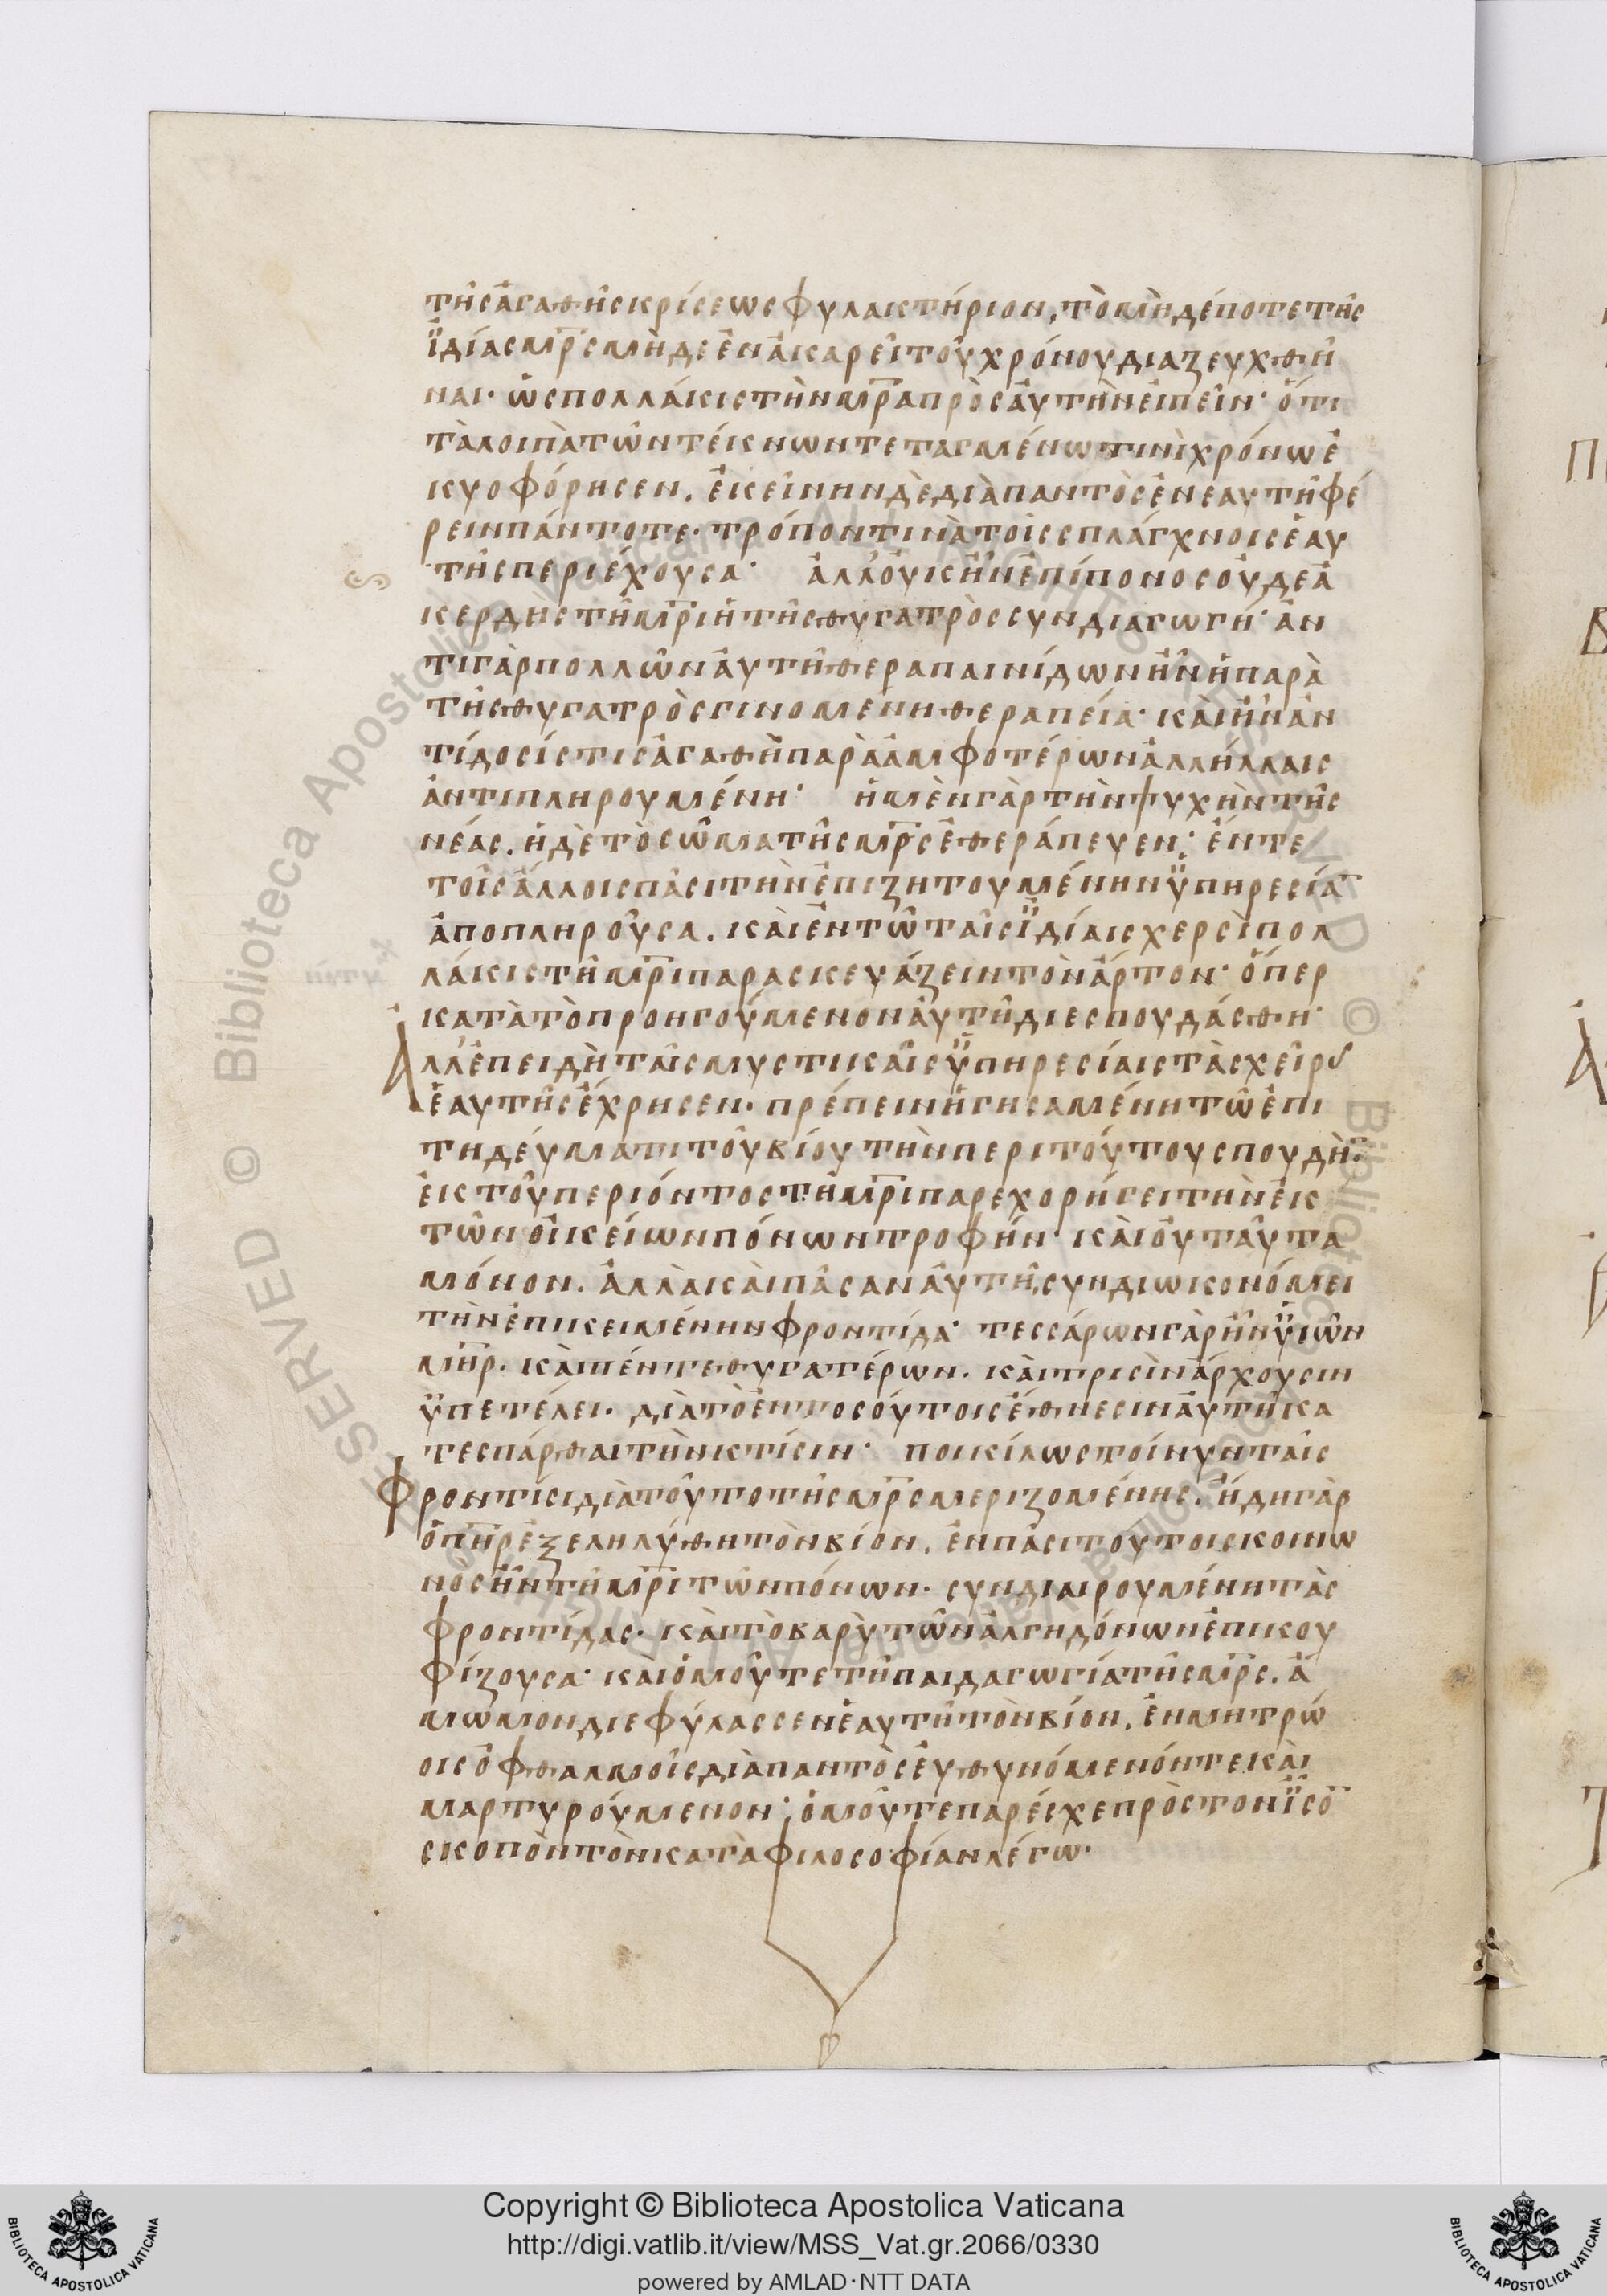 τῆς ἀγαθῆς κρίσεως φυλακτήριον, τὸ μὴ δέποτε τῆς
ϊδίας μρ̅ς μὴδε ἐν ἀκαρεῖ τοῦ χρόνου διαζευχθῆ
ναι· ὡς πολλάκις τὴν μρ̅α πρὸς ἀυτὴν ἐιπεῖν· ὅτι
τὰ λοιπὰ τῶν τέκνων τεταγμένω τινὶ χρόνω ἐ
κυοφόρησεν. ἐκείνην δὲ διὰ παντὸς ἐν εαυτῆ φέ
ρειν πάντοτε· τρόπον τινὰ τοῖς σπλάγχνοις ἑαυ
τῆς περιέχουσα· ἀλλ' ὀυκ ἦν ἐπίπονος ὀυδε ἀ
κερδὴς τῆ μρ̅ι ἡ τῆς θυγατρὸς συνδιαγωγή· ἀν
τι γὰρ πολλῶν ἀυτῆ θεραπαινίδων ἦν ἡ παρὰ
τῆς θυγατρὸς γινομενη θεραπεία· κὰι ἦν ἀν
τίδοσίς τις ἀγαθὴ παρὰ ἀμφοτέρων ἀλλήλλαις
ἀντιπληρουμένη· ἡ μὲν γὰρ τὴν ψυχὴν τῆς
νέας. ἡ δὲ τὸ σῶμα τῆς μρ̅ς ἐθεράπευεν· ἔν τε
τοῖς ἄλλοις πᾶσι τὴν ἐπιζητουμένην ϋπηρεσία̅
ἀποπληροῦσα. κὰι ἐν τῶ ταῖς ϊδίαις χερσὶ πολ
λάκις τῆ μρ̅ι παρασκευάζειν τὸν ἄρτον· ὅπερ
κατὰ τὸ προηγούμενον ἀυτῆ διεσπουδάσθη·
Ἀλλ' ἐπειδὴ ταῖς μυστικαῖς ϋπηρεσίαις τὰς χεῖρς
ἑαυτῆς ἔχρησεν· πρέπειν ἡγησαμένη τῶ ἐπι
τηδεύματι τοῦ βίου τὴν περι τούτου σπουδὴ̅·
ἐκ τοῦ περιόντος τῆ μρ̅ι παρεχορήγει τὴν ἐκ
τῶν ὀικείων πόνων τροφήν· κὰι ὀυ ταῦτα
μόνον. ἀλλὰ κὰι πᾶσαν ἀυτῆ, συνδιωκονόμει
τὴν ἐπικειμένην φροντίδα· τεσσάρων γὰρ ἦν ϋιῶν
μη̅ρ. κὰι πέντε θυγατέρων. κὰι τρισὶν ἄρχουσιν
ϋπετέλει. διὰ τὸ ἐν τοσούτοις ἔθνεσιν ἀυτῆ κα
τεσπάρθαι τὴν κτίσιν· ποικίλως τοίνυν ταῖς
φροντίσι διὰ τοῦτο τῆς μρ̅ς μεριζομένης. ἤδη γὰρ
ὁ πη̅ρ ἐξεληλύθη τὸν βίον. ἐν πᾶσι τουτοις κοινω
νὸς ἦν τῆ μρ̅ι τῶν πόνων. συνδιαιρουμένη τὰς
φροντίδας· κὰι τὸ βαρὺ τῶν ἀλγηδόνων ἐπικου
φίζουσα· κὰι ὁμοῦ τε τῆ παιδαγωγία τῆς μρ̅ς. ἄ
μωμον διεφύλασσεν ἑαυτῆ τὸν βίον. ἐν μητρώ
οις ὀφθαλμοῖς διὰ παντὸς ἐυθυνόμενόν τε κὰι
μαρτυρούμενον· ὁμοῦ τε παρέσχε πρὸς τον ϊσο̅
σκοπὸν τὸν κατὰ φιλοσοφίαν λέγω·
Copyright © Biblioteca Apostolica Vaticana
http://digi.vatlib.it/view/MSS_Vat.gr.2066/0330
powered by AMLAD·NTT DATA